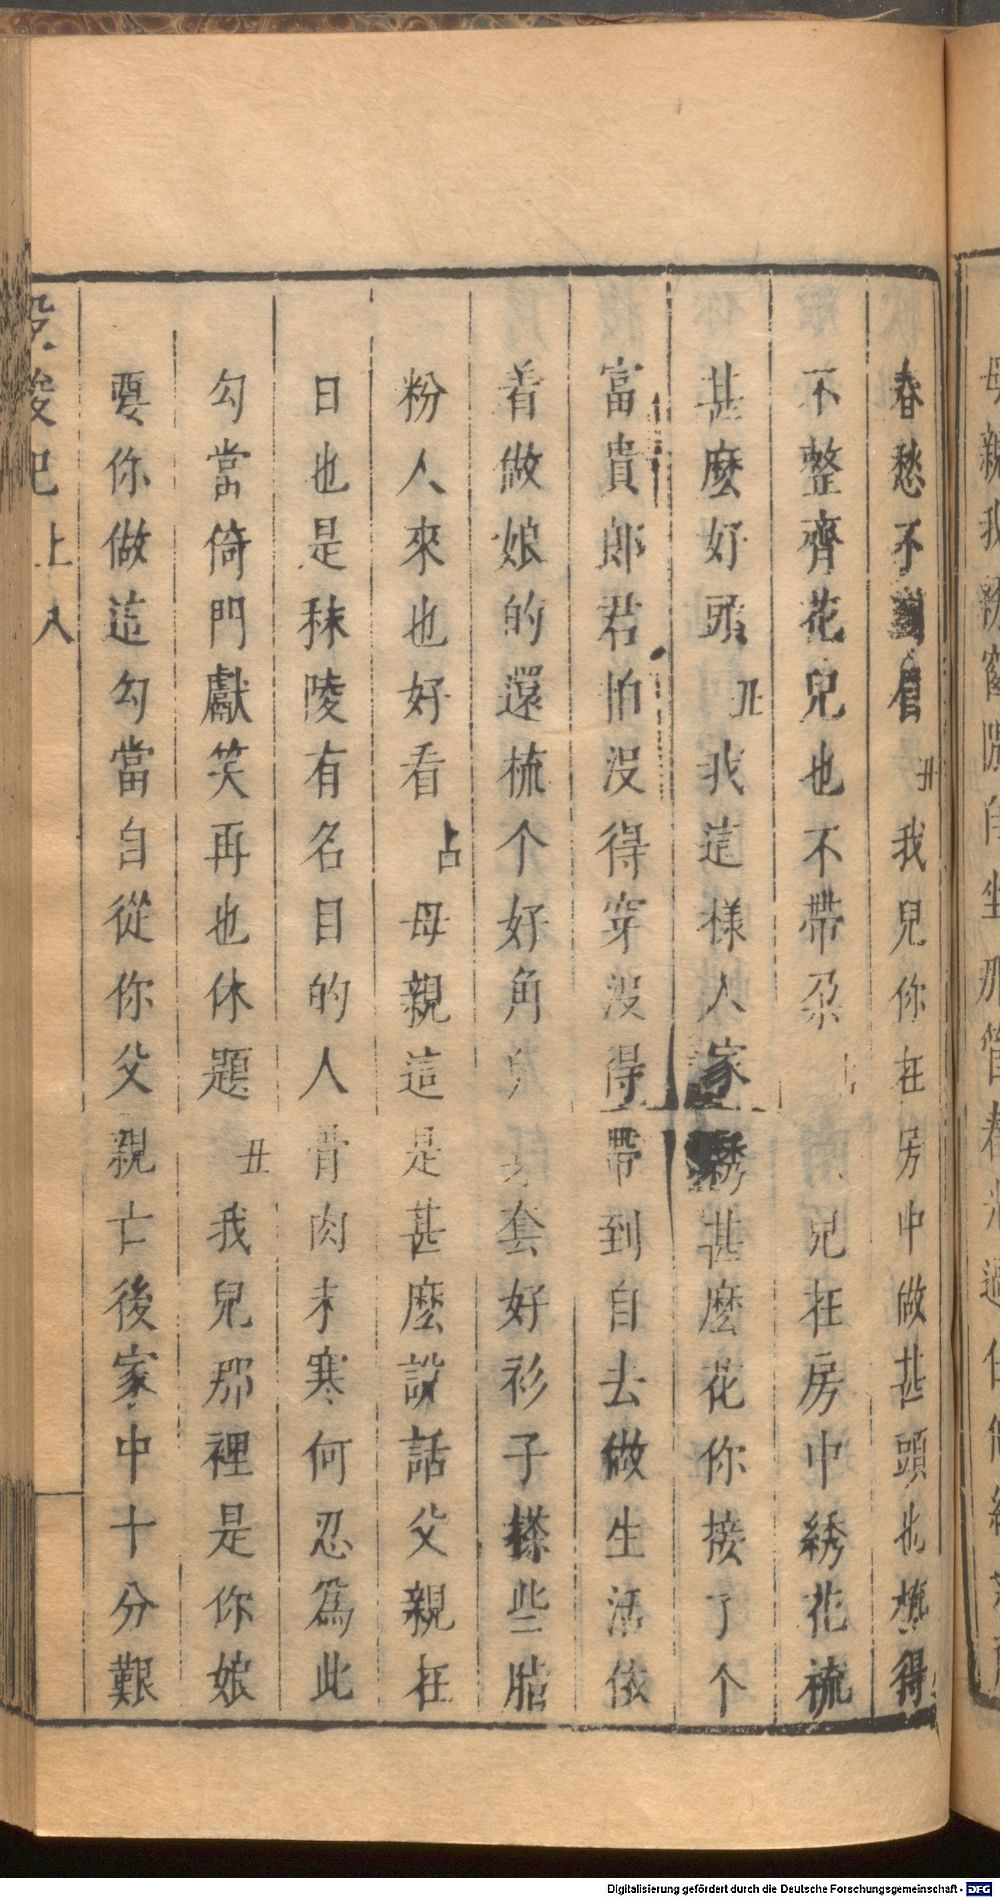 春愁不到眉丑我兒你在房中做甚頭也梳得
不整齊花兒也不帶朶兒在房中綉花梳
甚麽好頭丑我這樣人家綉甚麽花你接了个
富貴郎君怕没得穿没得帶到自去做生活依
着做娘的還梳个好角套好衫子搽些胭
粉人來也好看占母親這是甚麽說話父親在
日也是秣陵有名目的人骨肉未寒何忍爲此
勾當倚門獻笑再也休題丑我兒那裡是你娘
要你做這勾當自從你父親亡後家中十分艱
投梭記上八
Digitalisierung gefördert durch die Deutsche Forschungsgemeinschaft - DFG